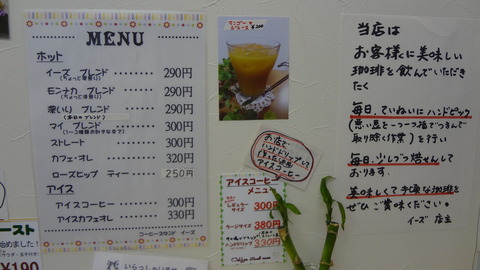 MENU
ホット
イーズ ブレンド ・・・・・・・・ 290円
モンナカ ブレンド ・・・・・・ 290円
深いり ブレンド ・・・・・・ 290円
(本日のブレンド)
マイ ブレンド ・・・・・・・・ 300円
ストレート ・・・・・・・・ 300円
カフェ・オレ ・・・・・・・・ 320円
ローズヒップ ティー ・・・・・・ 250円
アイス
アイスコーヒー ・・・・・・・・ 300円
アイスカフェオレ ・・・・・・ 330円
コーヒースタンド イーズ
¥200
お店で
ハンドドリップして
作った
アイスコーヒー
アイスコーヒー
メニュー
レギュラーサイズ
300円
ラージサイズ
380円
ハンドドリップ
330円
当店は
お客様に美味しい
珈琲を飲んでいただき
たく
毎日、ていねいにハンドピック
(悪い豆を一つ一つ指でつまんで
取り除く作業)を行い
毎日、少しづつ焙せんして
おります。
美味しくて手頃な珈琲を
ぜひご賞味ください。
イーズ 店主
ースト
始めました!
¥190
いらっしゃいませ